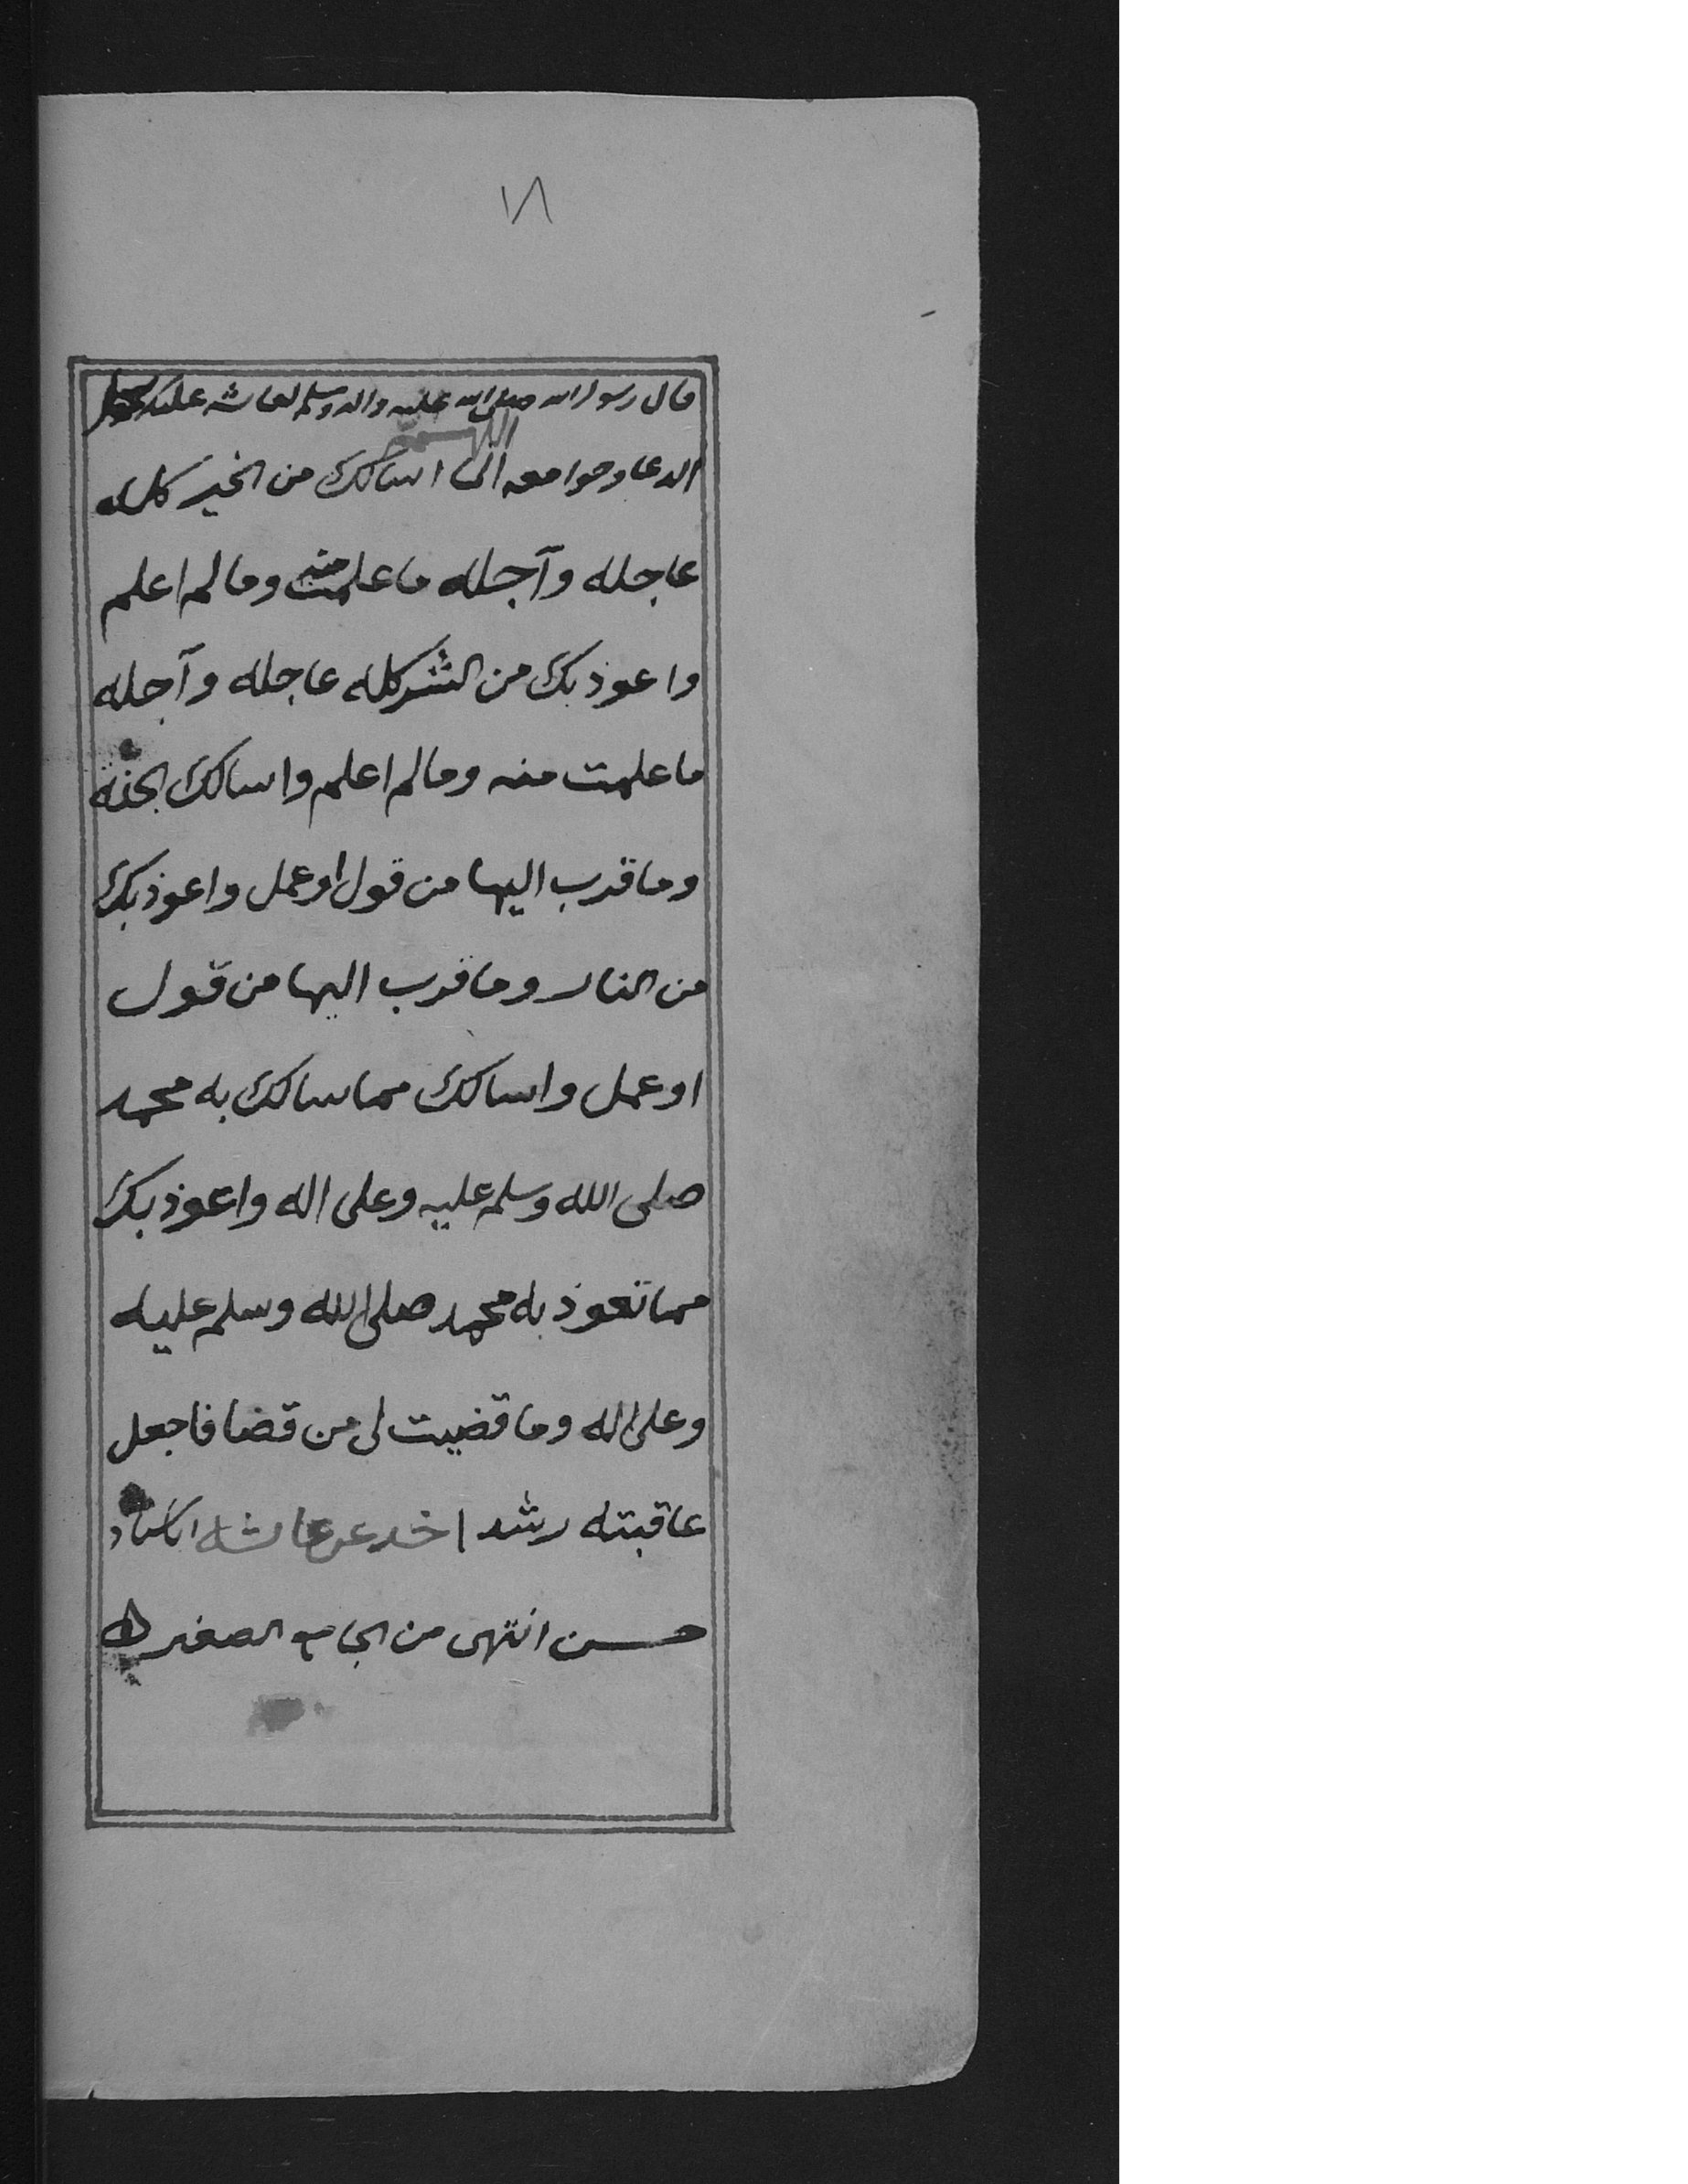 ١٨
قال رسول الله صلى الله عليه واله وسلم لعائشه عليك بجمل
اللهم
الدعا وجوامعه انى اسالك من الخير كله
عاجله وآجله ما علمت منه وما لم اعلم
واعوذ بك من الشر كله عاجله وآجله
ما علمت منه وما لم اعلم واسالك الجنة
وما قرب اليها من قول او عمل واعوذ بك
من النار وما قرب اليها من قول
او عمل واسالك مما سالك به محمد
صلى الله وسلم عليه وعلى اله واعوذ بك
مما تعوذ به محمد صلى الله وسلم عليه
وعلى اله وما قضيت لى من قضا فاجعل
عاقبته رشدا خد عن عائشه اسناد
حسن انتهى من الجامع الصغير